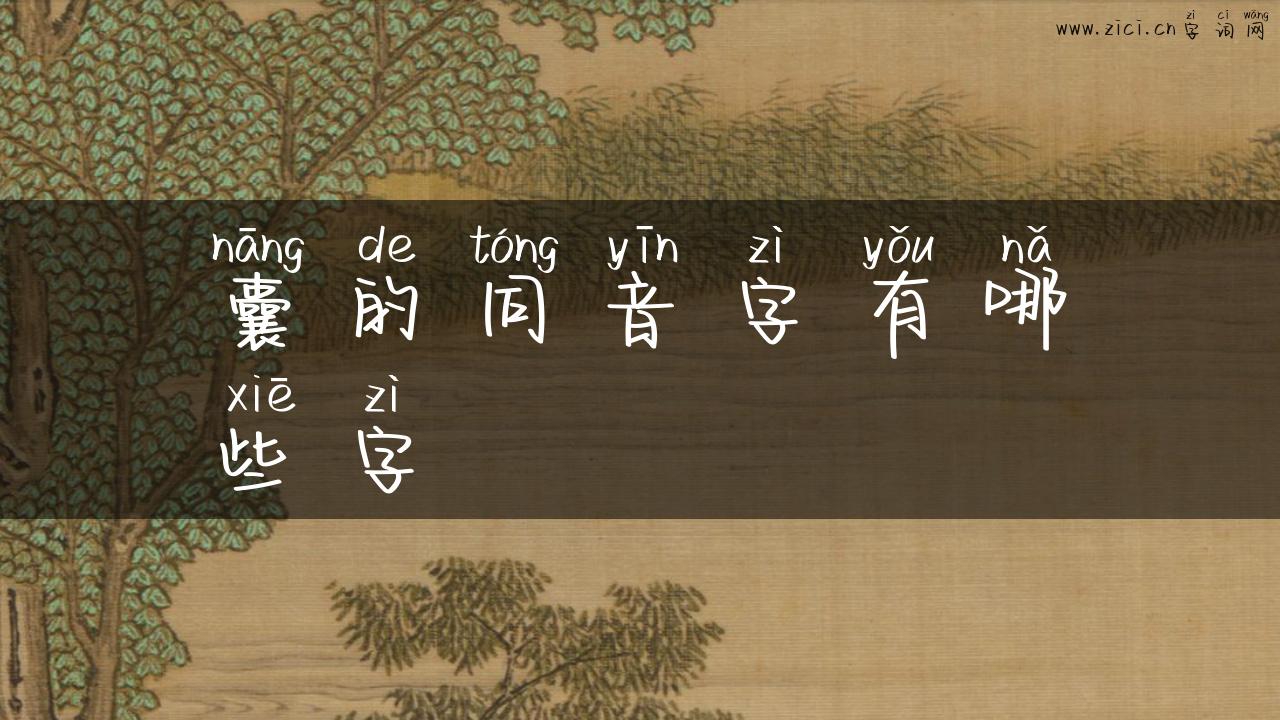 zì cí wǎng
www.zici.cn 字 词 网
nāng de tóng yīn zì yǒu nǎ
囊 的 同 音 字 有 哪
xiē zì
些 字